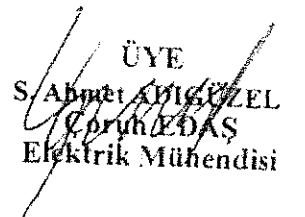 ÜYE
S. Ahmet ADIGÜZEL
Çoruh EDAŞ
Elektrik Mühendisi